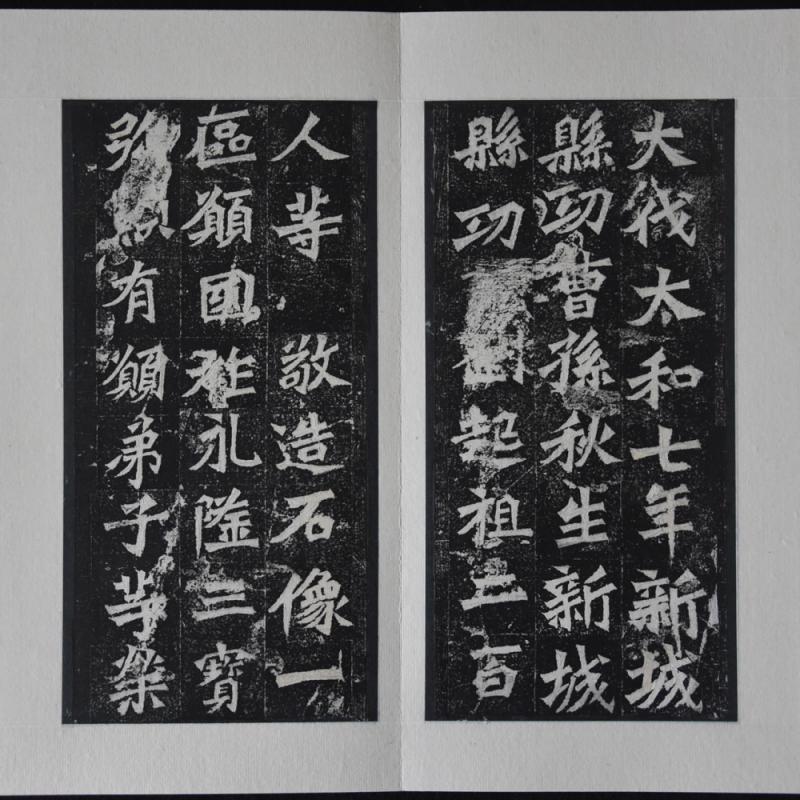 大伐太和七年新城
縣功曹孫秋生新城
縣功曹劉起祖二百
人等敬造石像一
區願國祚永隆三寶
彌顯有願弟子等榮